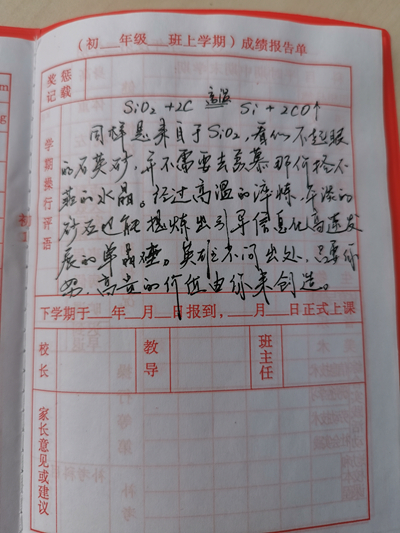 （初 年级 班上学期）成绩报告单
奖惩记载
SiO₂ +2C 高温 Si + 2CO↑
学期操行评语
同样是来自于SiO₂，看似不起眼
的石英砂，并不需要去羡慕那价格不
菲的水晶。经过高温的淬炼，平淡的
砂石也能提炼出引导信息化高速发
展的单晶硅。英雄不问出处，只要你
努 高贵的价值由你来创造。
下学期于 年 月 日报到， 月 日正式上课
校长 教导 班主任
家长意见或建议